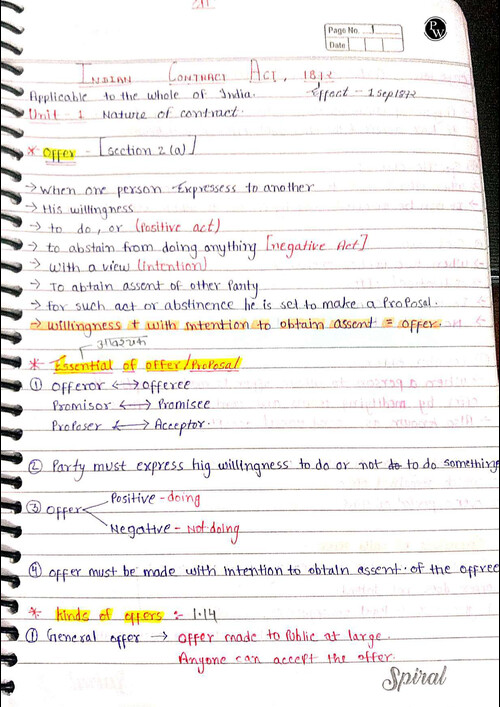 Page No. 1
Date
PW
INDIAN CONTRACT ACT, 1872
Applicable to the whole of India. Effect - 1 Sep 1872
Unit - 1 Nature of contract.
* Offer - [section 2(a)]
→ When one person Expressess to another
→ His willingness
→ to do, or (Positive act)
→ to abstain from doing anything [negative Act]
→ With a view (Intention)
→ To abtain assent of other Party
→ for such act or abstinence he is set to make a Proposal.
→ willingness + with intention to obtain assent = offer.
* Essential of offer/Proposal
① Offeror ↔ Offeree
Promisor ↔ Promisee
Proposer ↔ Acceptor.
② Party must express hig willingness to do or not to do something
③ Offer
Positive - doing
Negative - Not doing
④ offer must be made with intention to obtain assent of the offree
* Kinds of offers :- 1.14
① General offer → offer made to Public at large.
Anyone can accept the offer.
Spiral